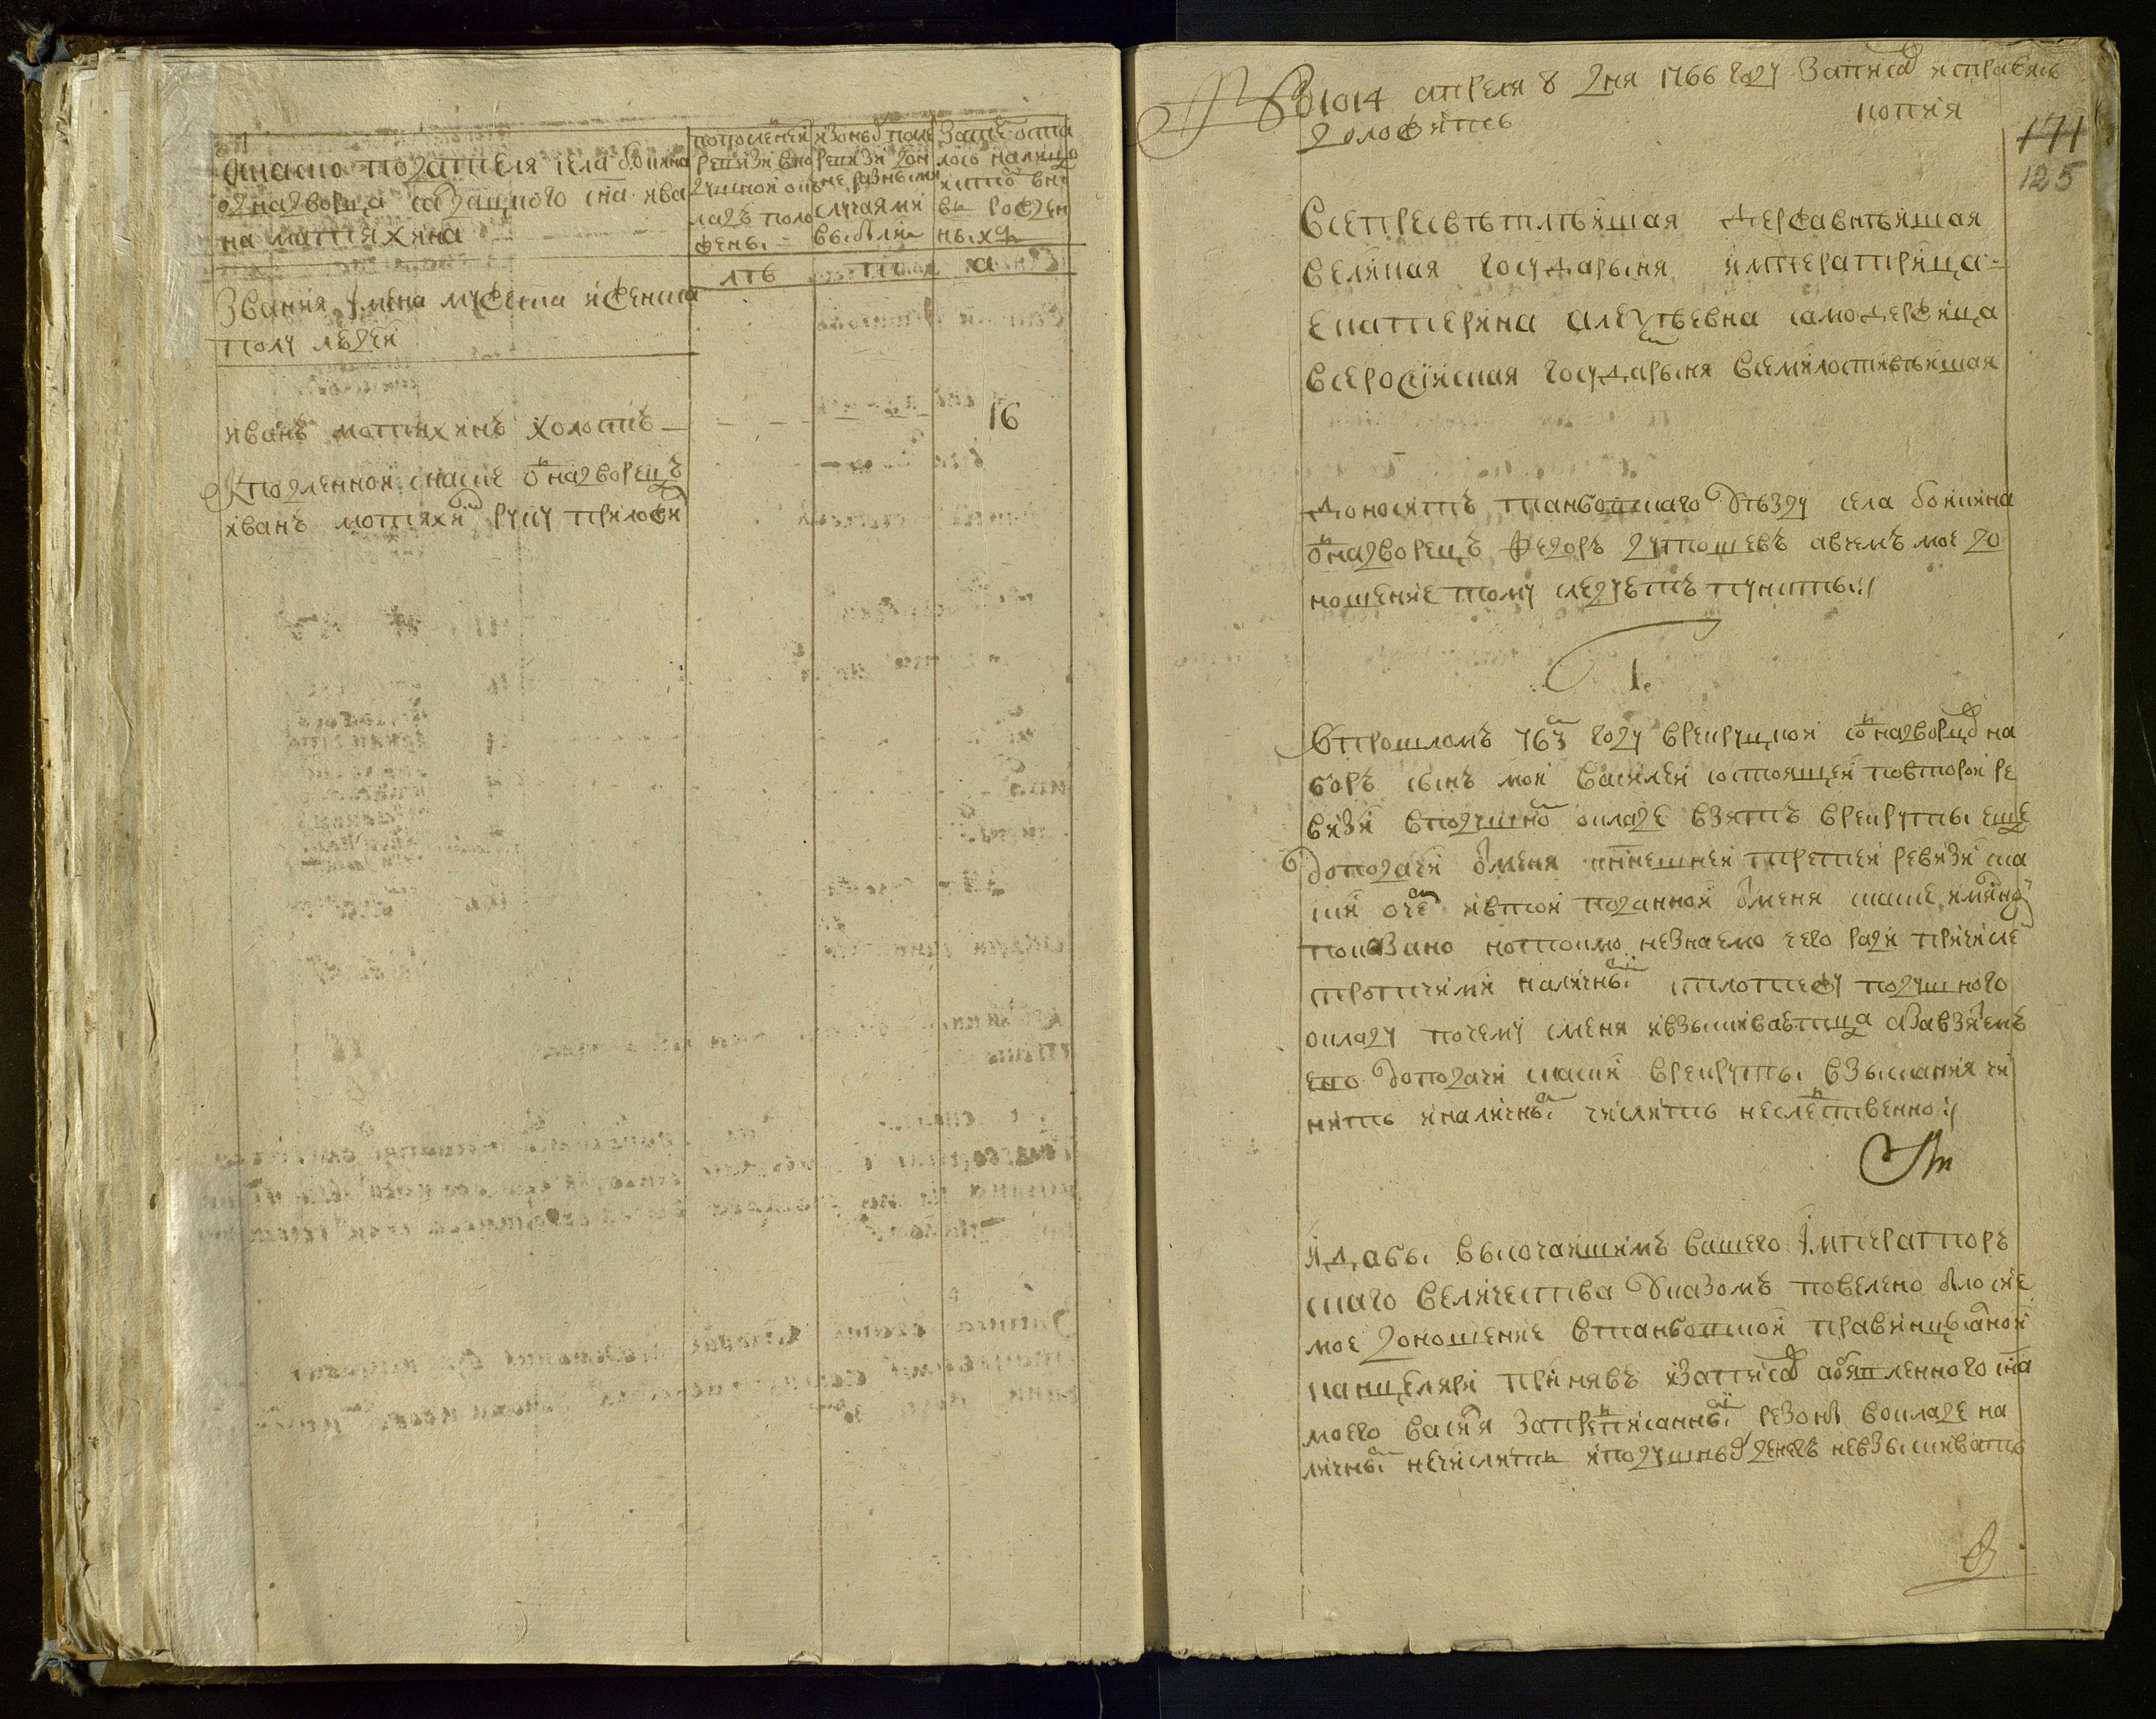 онаго подателя села боикина
однадворца салдацкого сна ива
на матяхина
попоследнеи
ревизи впо
душнои окъ
ладъ поло
жены
изоных после
ревизи до
не разными
случаями
выбыли
Затемъ оста
лось налицо
ново
рожден
ныхъ
летъ
Звания имена мужеска иженска
полу людеи
иванъ мотяхинъ холостъ
16
Кподленнои скаске однадворецъ
иванъ мотяхинъ руку приложилъ
№ 1014 апреля 8 дня 1766 году Записавъ исправясь
доложить
копия
171
125
Всепресветлеишая державнеишая
великая государыня императрица
екатерина алексеевна самодержица
всеросииская государыня всемилостивеишая
доноситъ танбовскаго уезду села боикина
однадворецъ федоръ дутошевъ авчемъ мое до
ношение тому следуетъ пункты
1.
Впрошломъ 763м году врекруцкои соднадворцовъ на
боръ сынъ мой василеи состоящеи повторои ре
визи вподушномъ окладе взятъ врекруты еще
доподачи уменя кнынешнеи третеи ревизи ска
ски очемъ ивтои поданнои уменя скаске имянно
показано нотокмо незнаемо чего ради причисленъ
спротчими наличными сплотежу подушного
окладу почему сменя ивзыскивается азавзятьемъ
ево доподачи скаски врекруты взыскания чи
нить иналичнымъ числить неследственно
идабы высочаишимъ вашего императоръ
скаго величества указомъ повелено было сие
мое доношение втанбовскои правинцыалнои
канцелярии принявъ изаписавъ абъявленного сна
моего василья запрописанными резоны вокладе на
личнымъ нечислить иподушныхъ денегъ невзыскивать